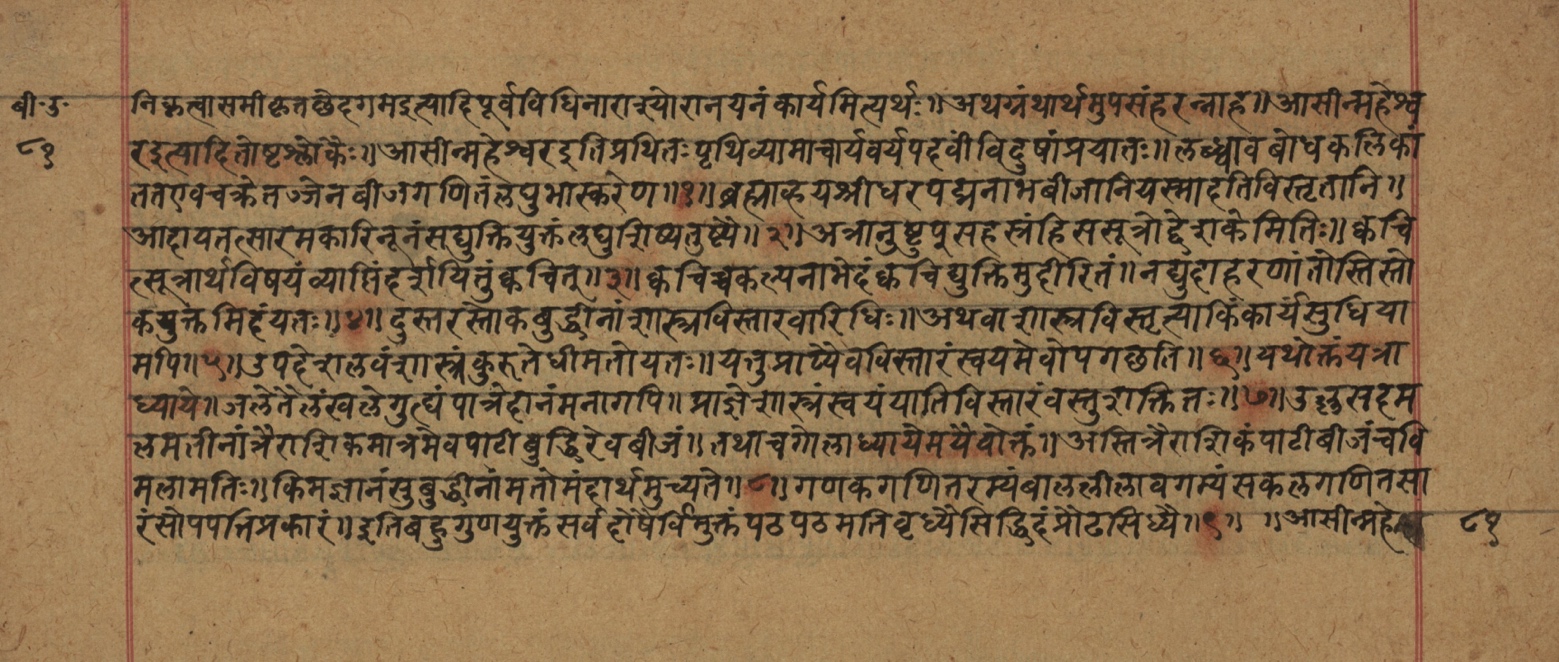 बी॰उ॰
८१
निकृत्वासमीकृतछेदगमइत्यादिपूर्वविधिनाराश्योरानयनंकार्यमित्यर्थः॥अथग्रंथार्थमुपसंहरन्नाह॥आसीन्महेश्व
रइत्यादितोष्टश्लोकैः॥आसीन्महेश्वरइतिप्रथितःपृथिव्यामाचार्यवर्यपदवींविदुषांप्रयातः॥लब्ध्वावबोधकलिकां
ततएवचक्रेतज्जेनबीजगणितंलघुभास्करेण॥१॥ब्रह्माव्हयश्रीधरपद्मनाभबीजानियस्मादतिविस्तृतानि॥
आदायतत्सारमकारिनूनंसद्युक्तियुक्तंलघुशिष्यतुष्ट्यै॥२॥अत्रानुष्टुप्सहस्रंहिससूत्रोद्देशकेमितिः॥क्वचि
त्सूत्रार्थविषयंव्याप्तिंदर्शयितुंक्वचित्॥३॥क्वचिच्चकल्पनाभेदंक्वचिद्युक्तिमुदीरितं॥नह्युदाहरणांतोस्तिस्तो
कमुक्तमिदंयतः॥४॥दुस्तरस्तोकबुद्धीनांशास्त्रविस्तारवारिधिः॥अथवाशास्त्रविस्तृत्याकिंकार्यंसुधिया
मपि॥५॥उपदेशलवंशास्त्रंकुरुतेधीमतोयतः॥यत्तुप्राप्यैवविस्तारंस्वयमेवोपगछति॥६॥यथोक्तंयंत्रा
ध्याये॥जलेतैलंखलेगुह्यंपात्रेदानंमनागपि॥प्राज्ञेशास्त्रंस्वयंयातिविस्तारंवस्तुशक्तितः॥७॥उल्लसदम
लमतीनांत्रैराशिकमात्रमेवपाटीबुद्धिरेवबीजं॥तथाचगोलाध्यायेमयैवोक्तं॥अस्तित्रैराशिकंपाटीबीजंचवि
मलामतिः॥किमज्ञानंसुबुद्धीनामतोमंदार्थमुच्यते॥८॥गणकगणितरम्यंबाललीलावगम्यंसकलगणितसा
रंसोपपत्तिप्रकारं॥इतिबहुगुणयुक्तंसर्वदोषैर्विमुक्तंपठपठमतिवृध्यैसिद्धिदंप्रौढसिध्यै॥९॥ ॥आसीन्महे
८१